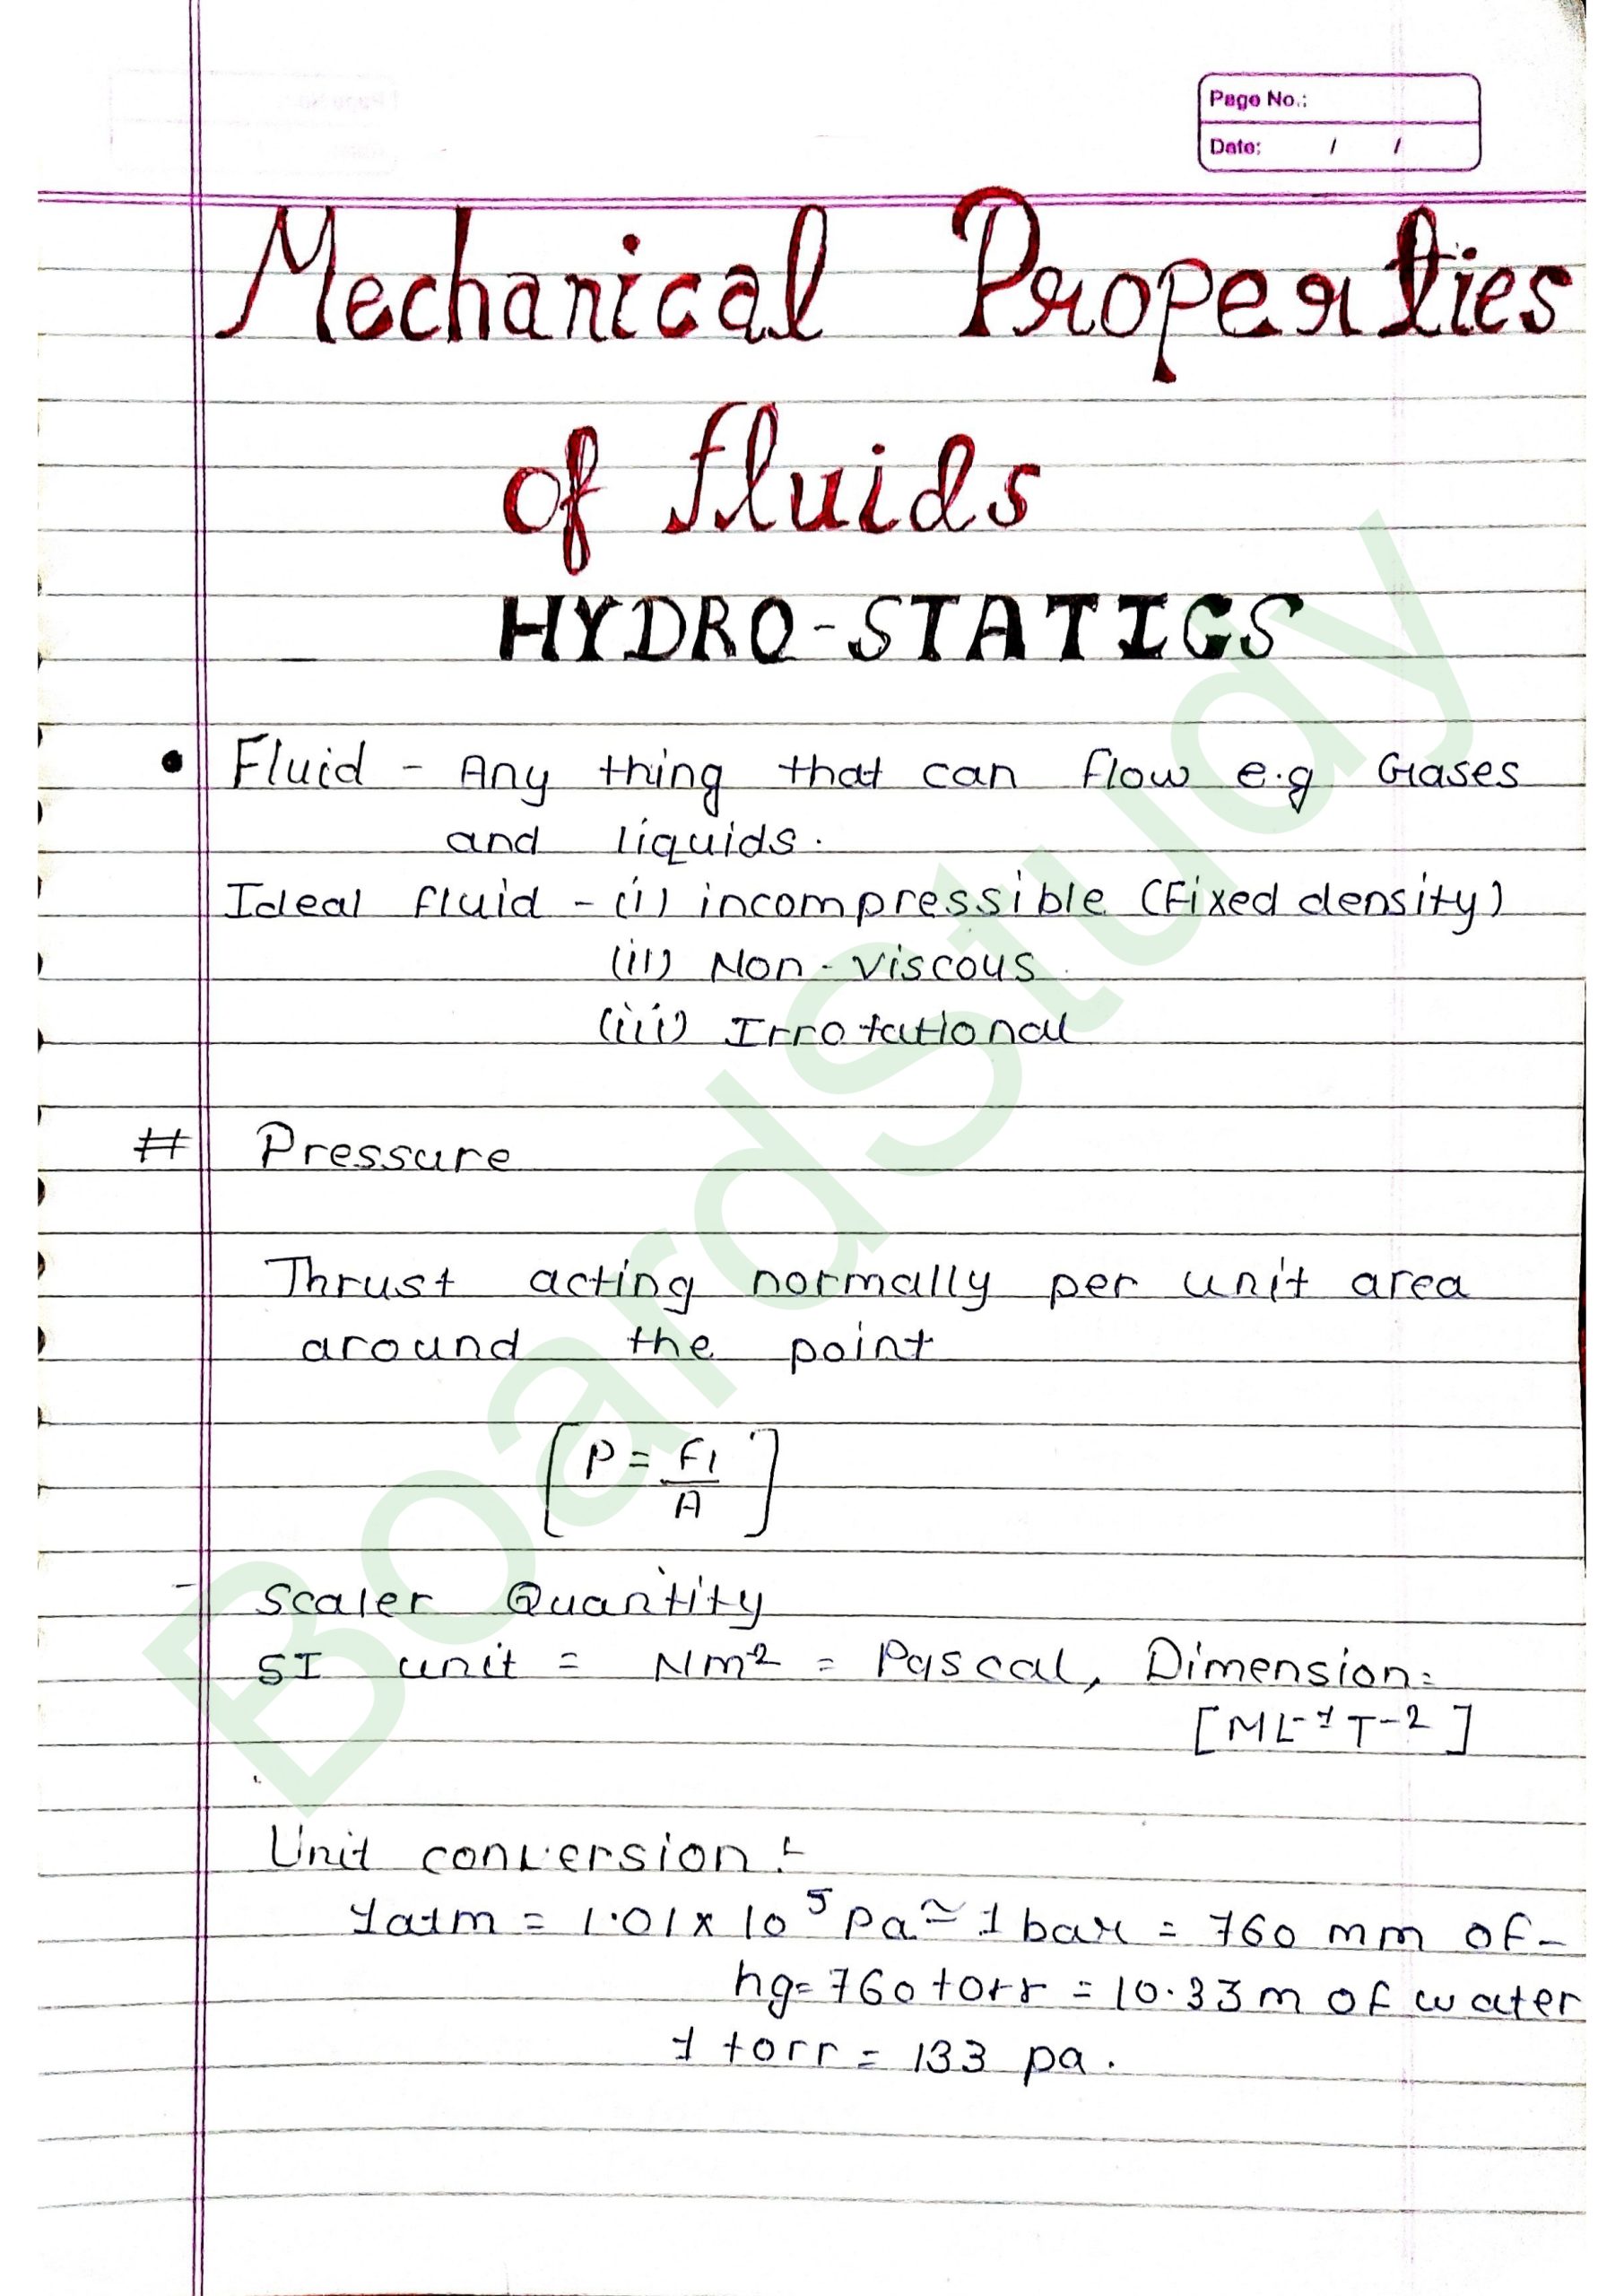 Page No.:
Date: / /
Mechanical Properties
of fluids
HYDRO-STATICS
• Fluid - Any thing that can flow e.g Gases
and liquids.
Ideal fluid - (i) incompressible (Fixed density)
(ii) Non-viscous
(iii) Irrotational
# Pressure
Thrust acting normally per unit area
around the point
[P = F⊥/A]
- Scaler Quantity
SI unit = Nm-2 = Pascal, Dimension=
[ML-1T-2]
Unit conversion :-
1atm = 1.01 x 10^5 pa ≃ 1 bar = 760 mm of-
hg= 760 torr = 10.33m of water
1 torr = 133 pa.
BoardStudy